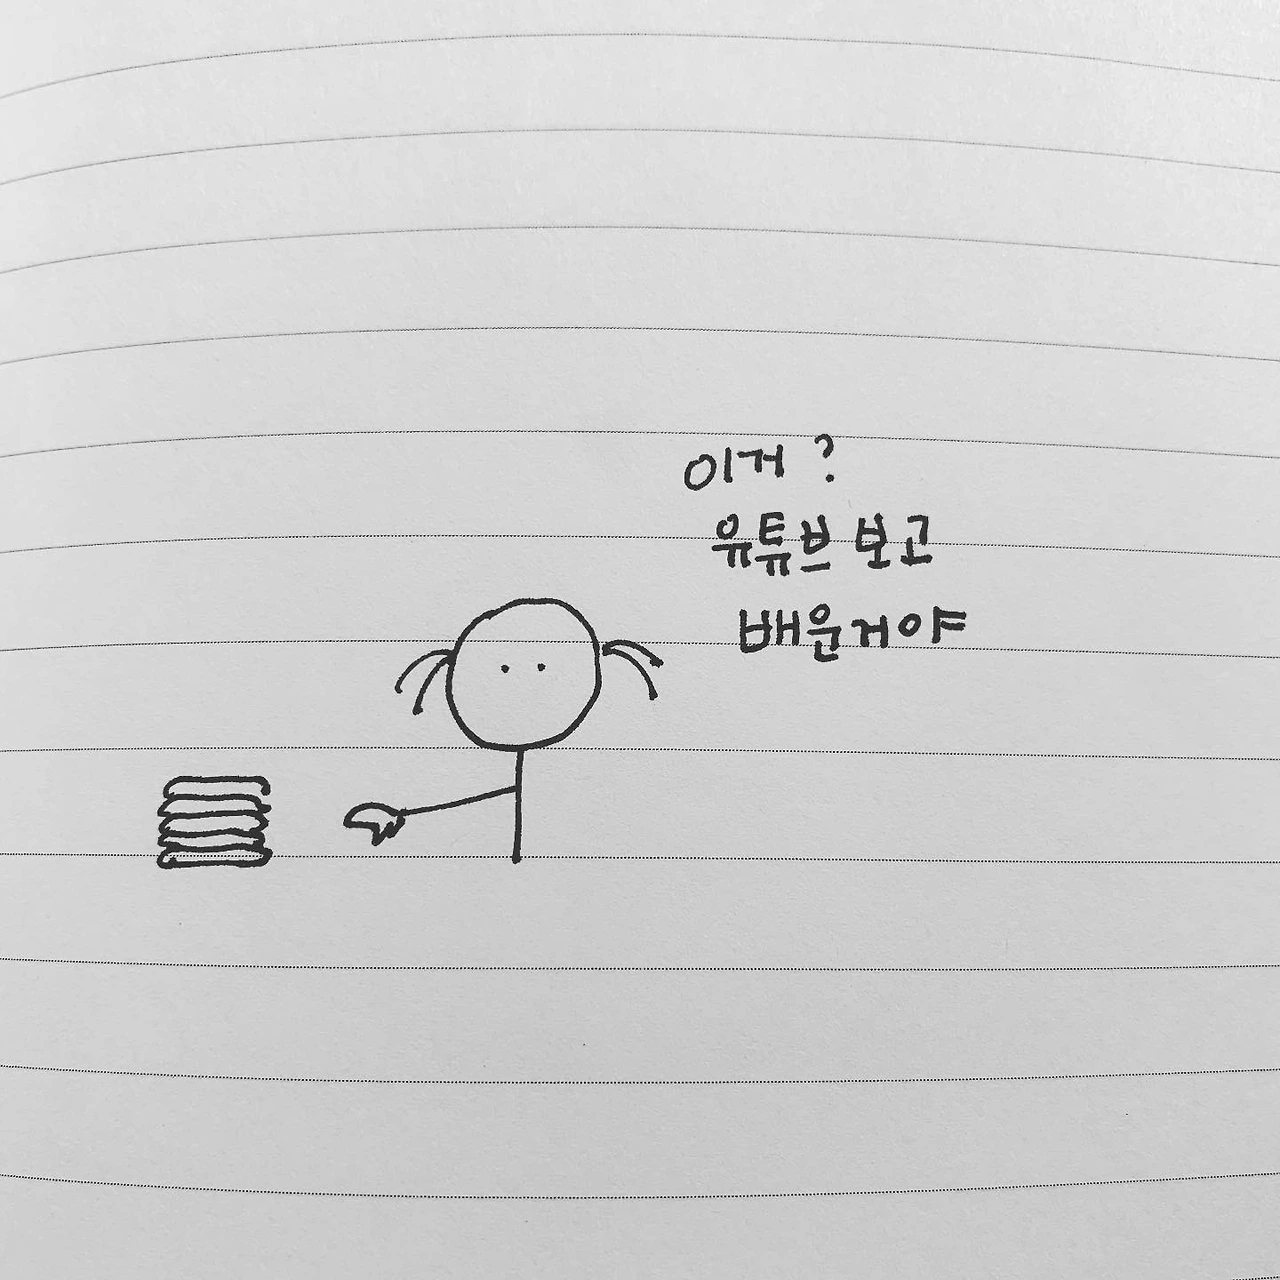 이거?
유튜브 보고
배운거야